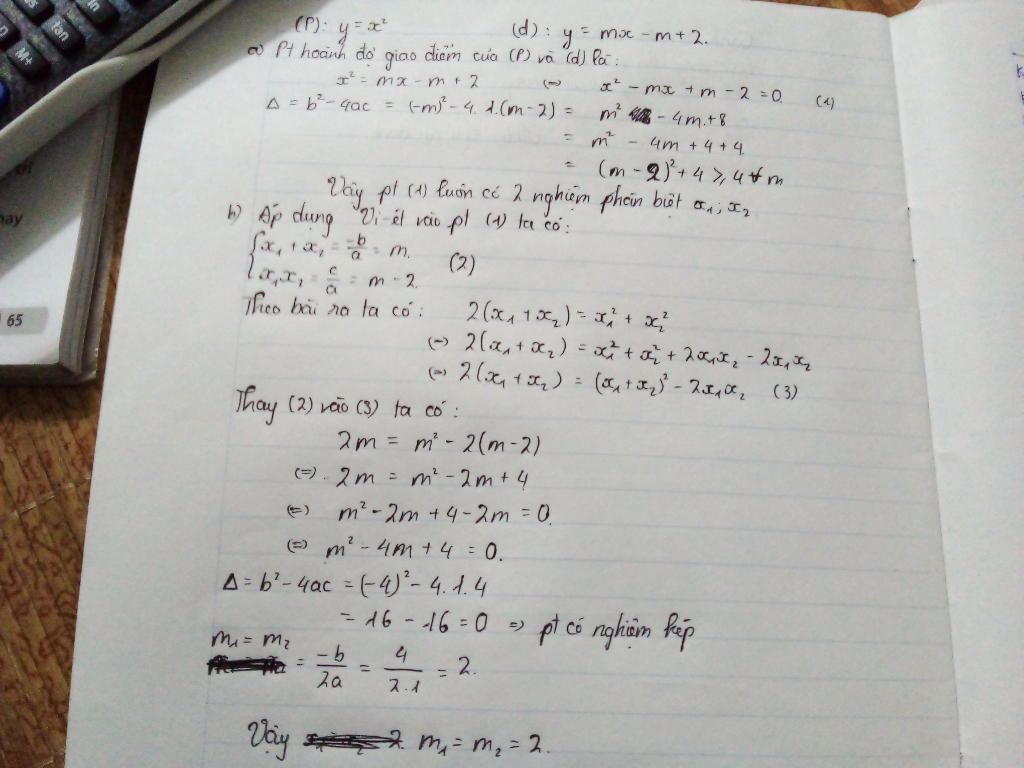 (P): y = x² (d): y = mx - m + 2.
a) Pt hoành độ giao điểm của (P) và (d) là:
x² = mx - m + 2 (=) x² - mx + m - 2 = 0. (1)
Δ = b² - 4ac = (-m)² - 4.1.(m - 2) = m² - 4m + 8
= m² - 4m + 4 + 4
= (m - 2)² + 4 ≥ 4 ∀ m
Vậy pt (1) luôn có 2 nghiệm phân biệt x₁; x₂
b) Áp dụng Vi-ét vào pt (1) ta có:
{x₁ + x₂ = -b/a = m.
x₁x₂ = c/a = m - 2. (2)
Theo bài ra ta có: 2(x₁ + x₂) = x₁² + x₂²
(=) 2(x₁ + x₂) = x₁² + x₂² + 2x₁x₂ - 2x₁x₂
(=) 2(x₁ + x₂) = (x₁ + x₂)² - 2x₁x₂ (3)
Thay (2) vào (3) ta có:
2m = m² - 2(m - 2)
(=) 2m = m² - 2m + 4
(=) m² - 2m + 4 - 2m = 0.
(=) m² - 4m + 4 = 0.
Δ = b² - 4ac = (-4)² - 4.1.4
= 16 - 16 = 0 => pt có nghiệm kép
m₁ = m₂
= -b/2a = 4/2.1 = 2.
Vậy m₁ = m₂ = 2.
65
hay
tan
M+